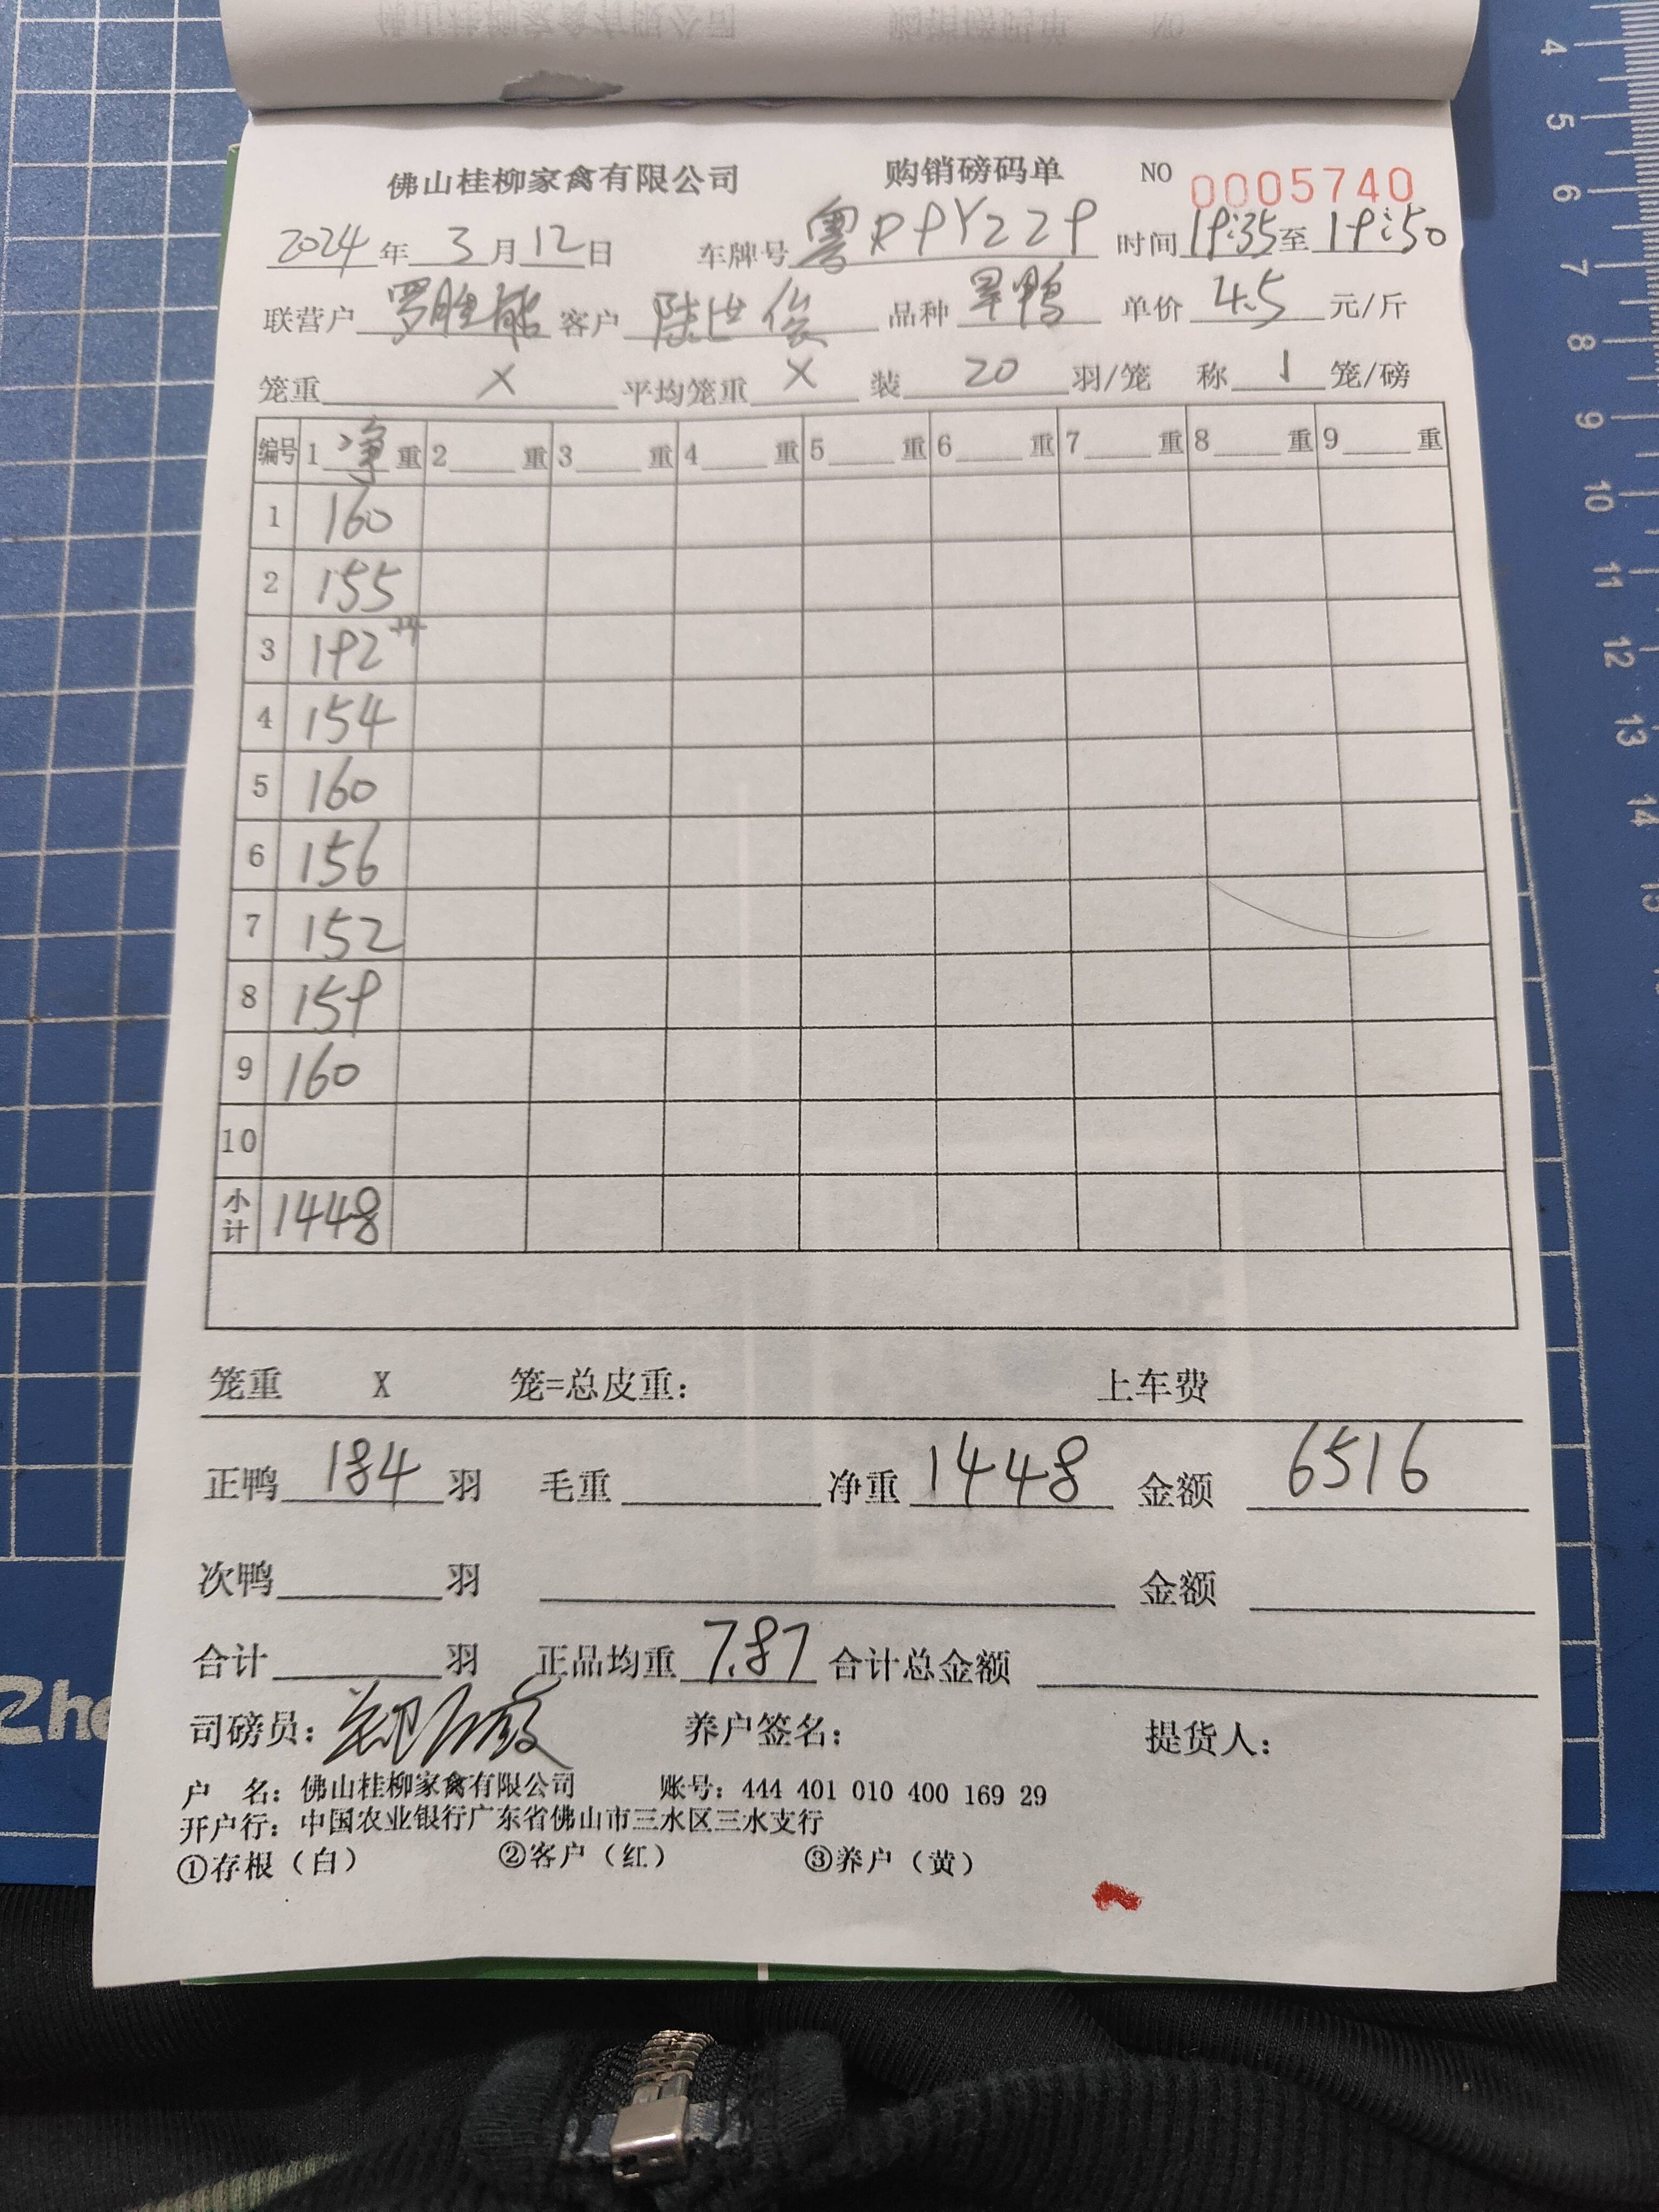 佛山桂柳家禽有限公司 购销磅码单 NO 0005740
2024年3月12日 车牌号粤R9Y229 时间19:35至19:50
联营户罗胜能 客户陆世俊 品种旱鸭 单价4.5元/斤
笼重X 平均笼重X 装20羽/笼 称1笼/磅
编号 1净重 2重 3重 4重 5重 6重 7重 8重 9重
1 160
2 155
3 192+4
4 154
5 160
6 156
7 152
8 159
9 160
10
小计 1448
笼重 X 笼=总皮重: 上车费
正鸭184羽 毛重 净重1448 金额6516
次鸭 羽 金额
合计 羽 正品均重7.87 合计总金额
司磅员: 养户签名: 提货人:
户 名: 佛山桂柳家禽有限公司 账号: 444 401 010 400 169 29
开户行: 中国农业银行广东省佛山市三水区三水支行
①存根(白) ②客户(红) ③养户(黄)
4
5
6
7
8
9
10
11
12
13
14
15